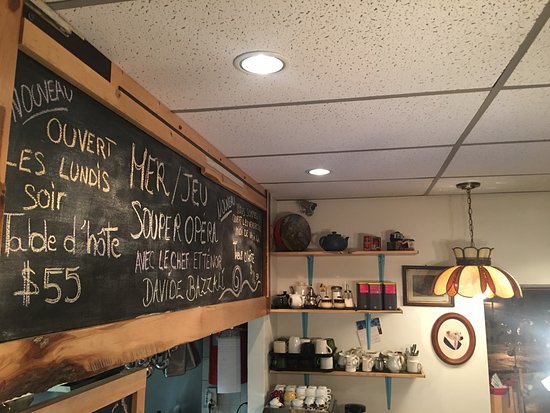 NOUVEAU
OUVERT
LES LUNDIS
SOIR
Table d'hôte
$55
MER/JEU
SOUPER OPERA
AVEC LE CHEF ET TENOR
DAVIDE BAZZALI